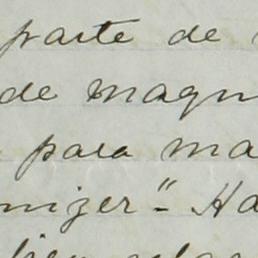 parte de
de magn
para ma
mizer". Ha